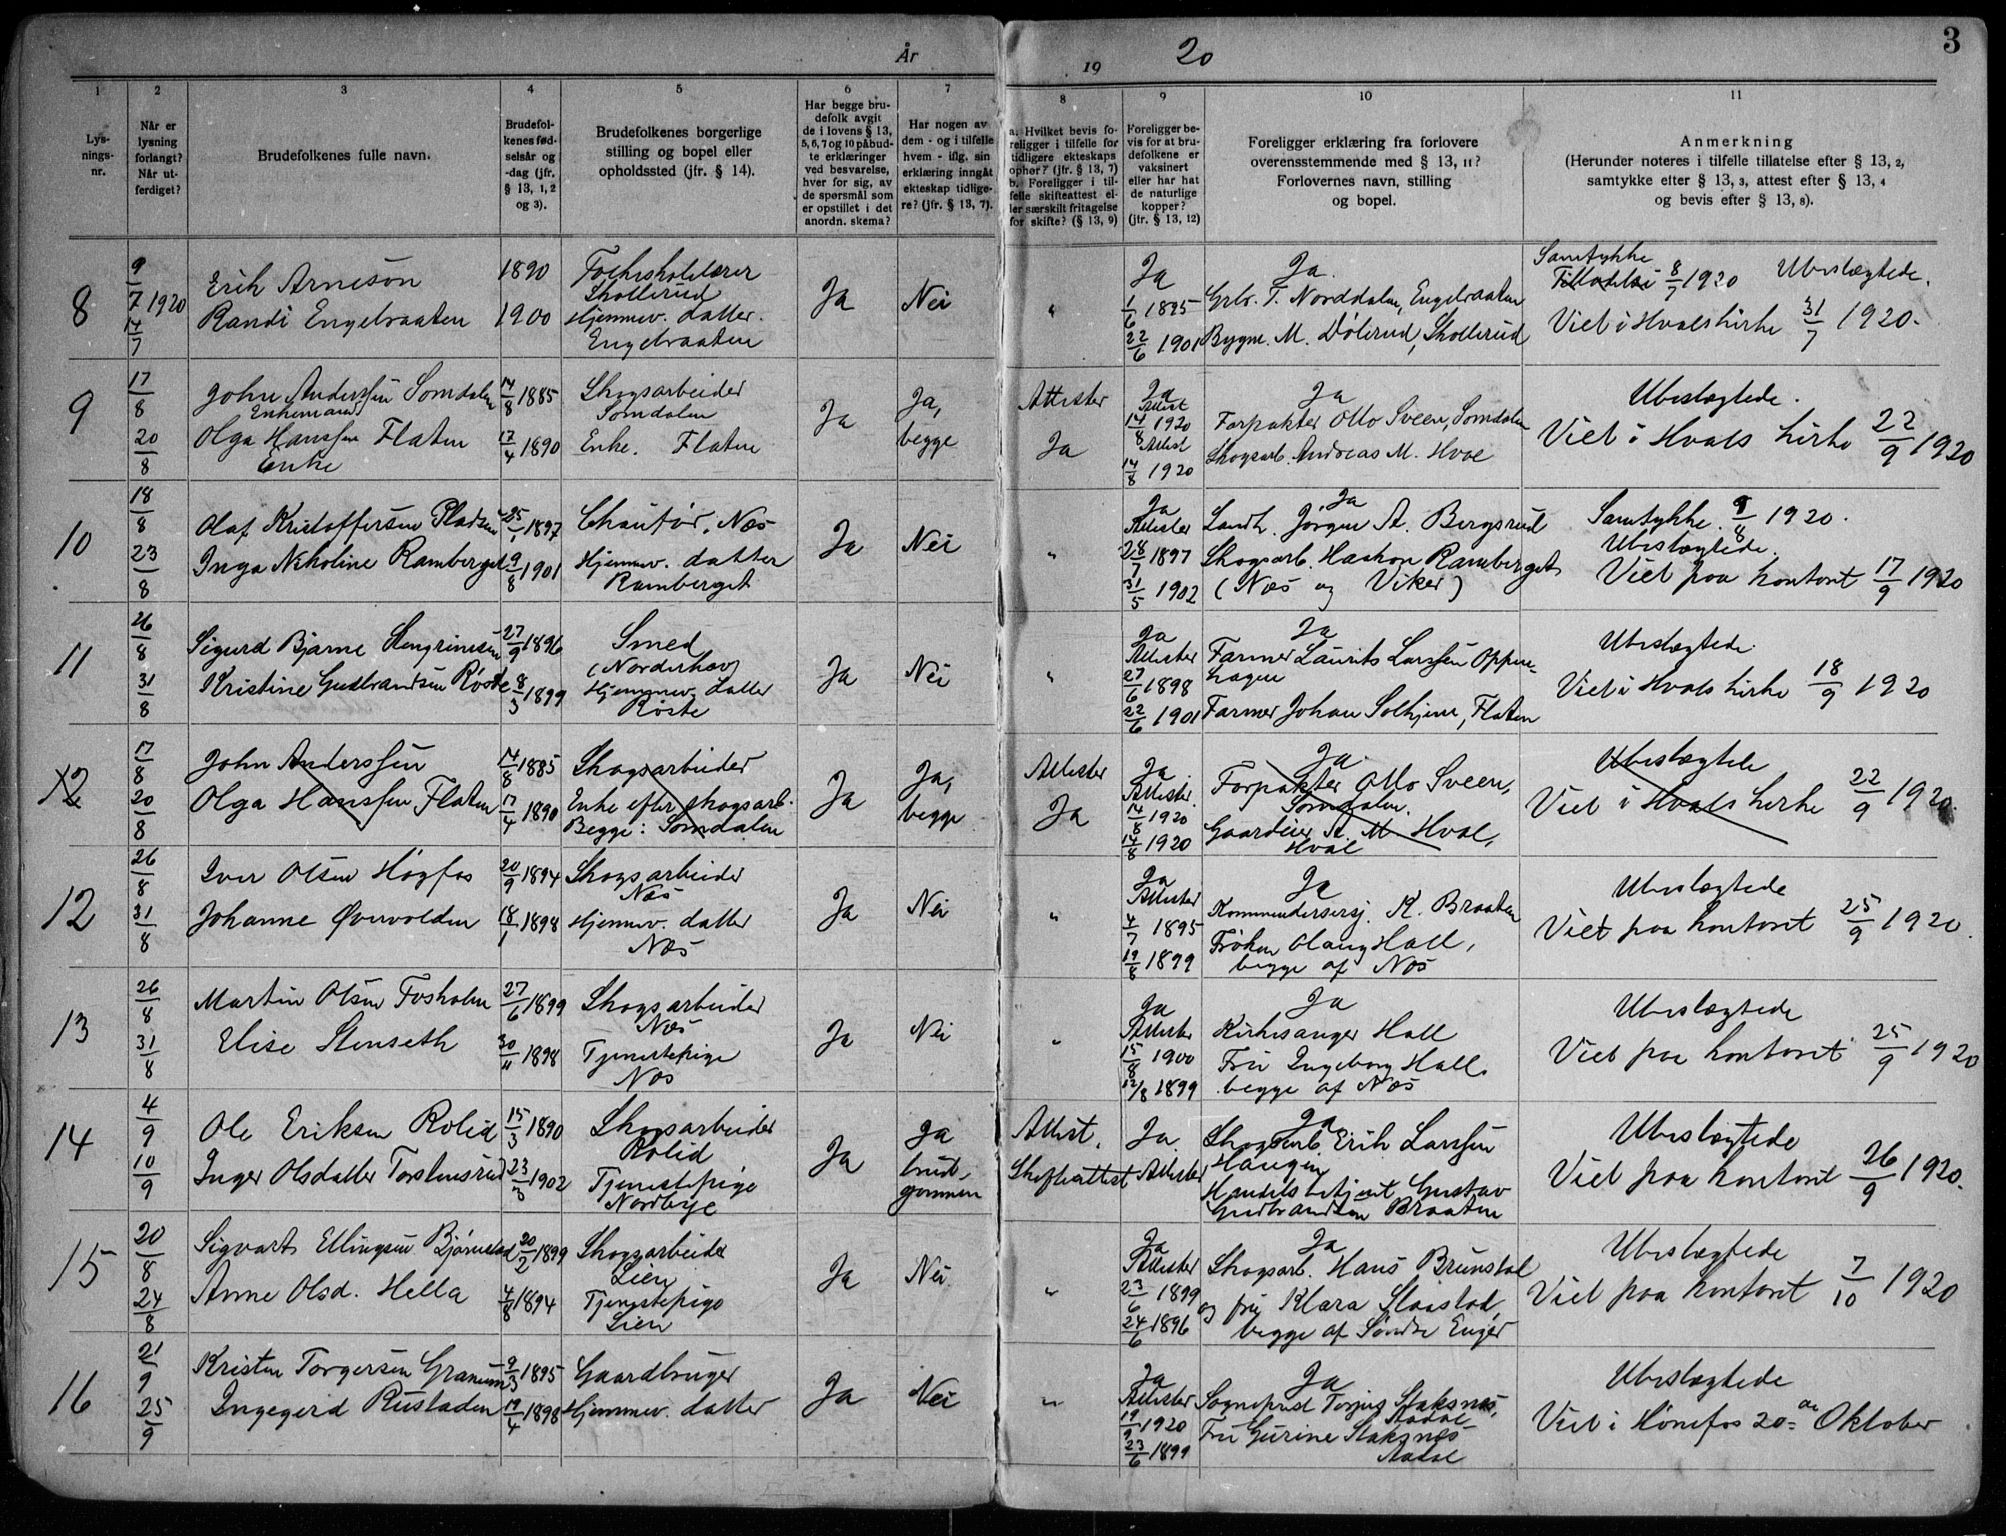 År 19 20
3
1 2 3 4 5 6 7 8 9 10 11
Lys-
nings-
nr.
Når er
lysning
forlangt?
Når ut-
ferdiget?
Brudefolkenes fulle navn.
Brudefol-
kenes fød-
selsår og
-dag (jfr.
§ 13, 1, 2
og 3).
Brudefolkenes borgerlige
stilling og bopel eller
opholdssted (jfr. § 14).
Har begge bru-
defolk avgit
de i lovens § 13,
5, 6, 7 og 10 påbud-
te erklæringer
ved besvarelse,
hver for sig, av
de spørsmål som
er opstillet i det
anordn. skema?
Har nogen av
dem - og i tilfelle
hvem - iflg. sin
erklæring inngåt
ekteskap tidlige-
re? (jfr. § 13, 7).
a. Hvilket bevis fo-
religger i tilfelle for
tidligere ekteskaps
ophør? (jfr. § 13, 7)
b. Foreligger i til-
felle skifteattest el-
ler særskilt fritagelse
for skifte? (§ 13, 9)
Foreligger be-
vis for at bru-
defolkene er
vaksinert
eller har hat
de naturlige
kopper?
(jfr. § 13, 12)
Foreligger erklæring fra forlovere
overensstemmende med § 13, 11?
Forlovernes navn, stilling
og bopel.
Anmerkning
(Herunder noteres i tilfelle tillatelse efter § 13, 2,
samtykke efter § 13, 3, attest efter § 13, 4
og bevis efter § 13, 8).
8
9/7 1920
14/7
Erik Arneson
Randi Engebraaten
1890
1900
Skollerud
Hjemmev. datter.
Engebraaten
Ja
Nei
"
Ja
1/6 1895
22/6 1901
Ja.
Grbr. T. Norddalen, Engebraaten
Bygm. M. Dølerud, Skollerud
Samtykke
Tilladelse 8/7 1920 Ubeslægtede.
Viet i Hvals kirke 31/7 1920.
9
17/8
20/8
John Anderssen Somdalen
Enkemand
Olga Hanssen Flaten
Enke
14/8 1885
17/4 1890
Skogsarbeider
Somdalen
Enke. Flaten
Ja
Ja,
begge
Attester
Ja
Ja
Attest
14/8 1920
Attest
14/8 1920
Ja
Forpakter Otto Sveen, Somdalen
Skogsarb. Andreas M. Hval
Ubeslægtede.
Viet i Hvals kirke 22/9 1920
10
18/8
23/8
Olaf Kristoffersen Pladsen
Inga Nikoline Ramberget
25/1 1897
9/8 1901
Chaufør, Næs
Hjemmev. datter
Ramberget
Ja
Nei
"
Ja
Attester
28/7 1897
31/5 1902
Ja
Landh. Jørgen A. Bergsrud
Skogsarb. Haakon Ramberget
(Næs og Viker)
Samtykke 9/8 1920.
Ubeslægtede.
Viet paa kontoret 17/9 1920
11
26/8
31/8
Sigurd Bjarne Stengrimsen
Kristine Gudbrandsen Røste
27/9 1896
8/3 1899
Smed
(Norderhov)
Hjemmev. datter
Røste
Ja
Nei
"
Ja
Attester
27/6 1898
22/6 1901
Ja
Farmer Laurits Larssen Oppen-
hagen
Farmer Johan Solhjem, Flaten
Ubeslægtede.
Viet i Hvals kirke 18/9 1920
12
17/8
20/8
John Anderssen
Olga Hanssen Flaten
14/8 1885
17/4 1890
Skogsarbeider
Enke efter skogsarb.
Begge: Somdalen
Ja
Ja,
begge
Attester
Ja
Ja
Attester
14/8 1920
14/8 1920
Ja
Forpakter Otto Sveen,
Somdalen.
Gaardeier A. M. Hval,
Hval
Ubeslægtede
Viet i Hvals kirke 22/9 1920.
12
26/8
31/8
Iver Olsen Høgfos
Johanne Øvervolden
20/9 1894
18/1 1898
Skogsarbeider
Næs
Hjemmev. datter
Næs
Ja
Nei
"
Ja
Attester
4/7 1895
19/8 1899
Ja
K. Braaten
Frøken Olaug Hall,
begge af Næs
Ubeslægtede
Viet paa kontoret 25/9 1920.
13
26/8
31/8
Martin Olsen Fosholm
Elise Stenseth
27/6 1899
30/11 1898
Skogsarbeider
Næs
Tjenestepige
Næs
Ja
Nei
"
Ja
Attester
15/8 1900
12/8 1899
Ja
Kirkesanger Hall
Fru Ingeborg Hall
begge af Næs
Ubeslægtede
Viet paa kontoret 25/9 1920
14
4/9
10/9
Ole Eriksen Rolid
Inger Olsdatter Torstensrud
15/3 1890
23/3 1902
Skogsarbeider
Rolid
Tjenestepige
Nordbye
Ja
Ja
brud-
gommen
Attest.
Skifteattest
Ja.
Attester
Ja
Skogsarb. Erik Larssen
Haugen
Handelsbetjent Gustav
Gudbrandsen Braaten
Ubeslægtede
Viet paa kontoret 26/9 1920.
15
20/8
24/8
Sigvart Ellingsen Bjørnstad
Anne Olsd. Hella
20/2 1899
4/8 1894
Skogsarbeider
Lien
Tjenestepige
Lien
Ja
Nei.
"
Ja
Attester
23/6 1899
24/6 1896
Ja
Skogsarb. Hans Brunstad
og fru Klara Slaastad
begge af Søndre Enger
Ubeslægtede
Viet paa kontoret 7/10 1920
16
21/9
25/9
Kristen Torgersen Granum
Ingegerd Rustaden
9/3 1895
19/4 1898
Gaardbruger
Hjemmev. datter
Ja
Nei
"
Ja
Attester
19/9 1920
23/6 1899
Ja
Sogneprest Torjus Staksnes,
Aadal
Fru Gurine Staksnæs
Aadal
Ubeslægtede
Viet i Hønefos 20de Oktober